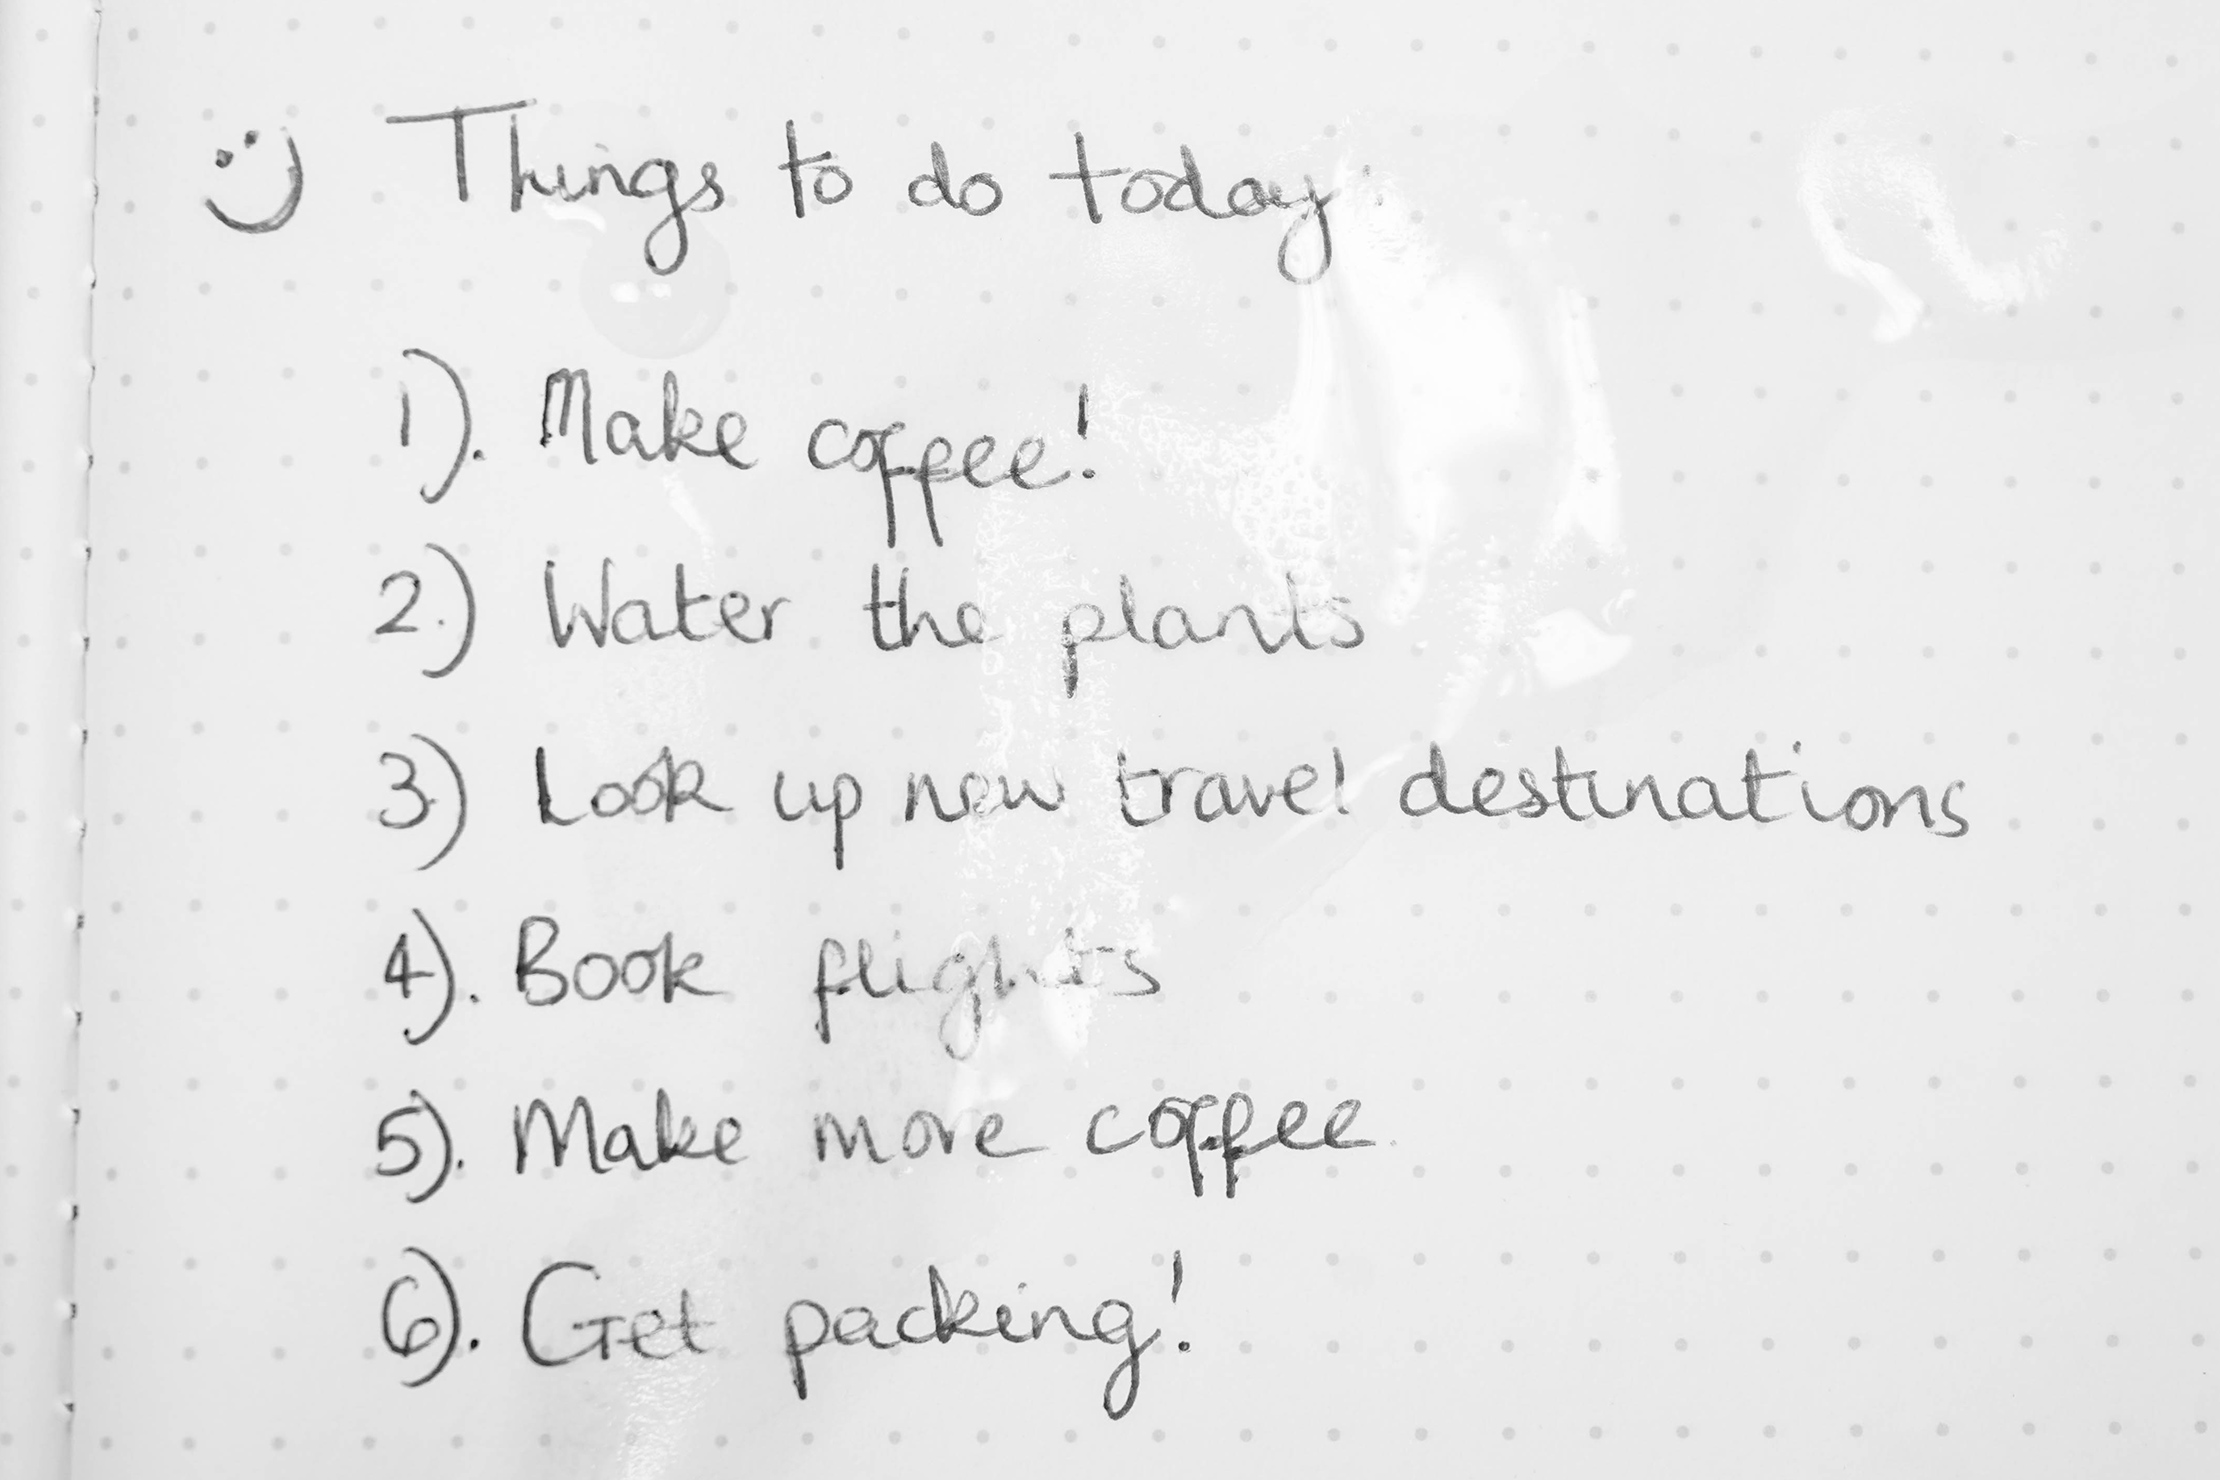 Things to do today:
1). Make coffee!
2.) Water the plants
3.) Look up new travel destinations
4). Book flights
5). Make more coffee.
6). Get packing!